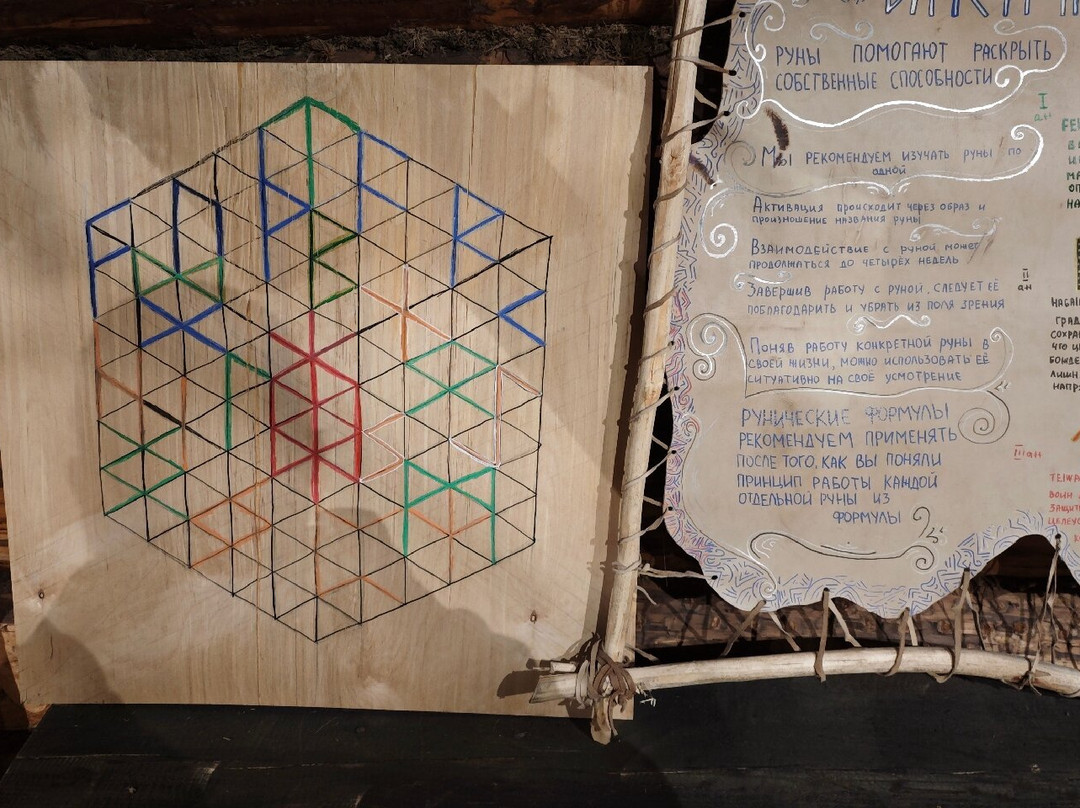 РУНЫ ПОМОГАЮТ РАСКРЫТЬ
СОБСТВЕННЫЕ СПОСОБНОСТИ
МЫ РЕКОМЕНДУЕМ ИЗУЧАТЬ РУНЫ ПО
ОДНОЙ
АКТИВАЦИЯ ПРОИСХОДИТ ЧЕРЕЗ ОБРАЗ И
ПРОИЗНОШЕНИЕ НАЗВАНИЯ РУНЫ
ВЗАИМОДЕЙСТВИЕ С РУНОЙ МОЖЕТ
ПРОДОЛЖАТЬСЯ ДО ЧЕТЫРЁХ НЕДЕЛЬ
ЗАВЕРШИВ РАБОТУ С РУНОЙ, СЛЕДУЕТ ЕЁ
ПОБЛАГОДАРИТЬ И УБРАТЬ ИЗ ПОЛЯ ЗРЕНИЯ
ПОНЯВ РАБОТУ КОНКРЕТНОЙ РУНЫ В
СВОЕЙ ЖИЗНИ, МОЖНО ИСПОЛЬЗОВАТЬ ЕЁ
СИТУАТИВНО НА СВОЁ УСМОТРЕНИЕ
РУНИЧЕСКИЕ ФОРМУЛЫ
РЕКОМЕНДУЕМ ПРИМЕНЯТЬ
ПОСЛЕ ТОГО, КАК ВЫ ПОНЯЛИ
ПРИНЦИП РАБОТЫ КАЖДОЙ
ОТДЕЛЬНОЙ РУНЫ ИЗ
ФОРМУЛЫ
I
АТТ
II
АТТ
ГРАД
III АТТ
ВОИН